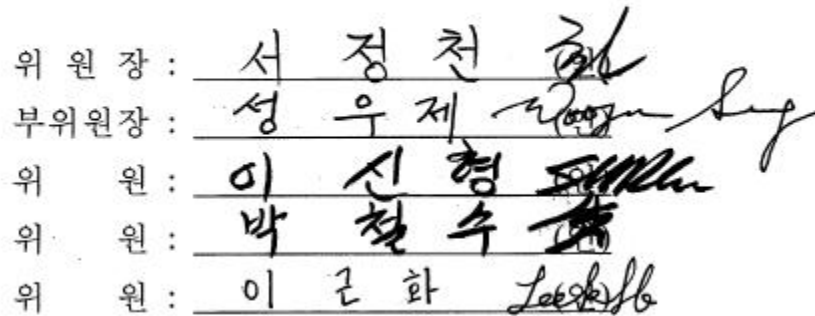 위 원 장 : 서 정 천 (인)
부위원장 : 성 우 제 (인)
위 원 : 이 신 형 (인)
위 원 : 박 철 수 (인)
위 원 : 이 근 화 (인)